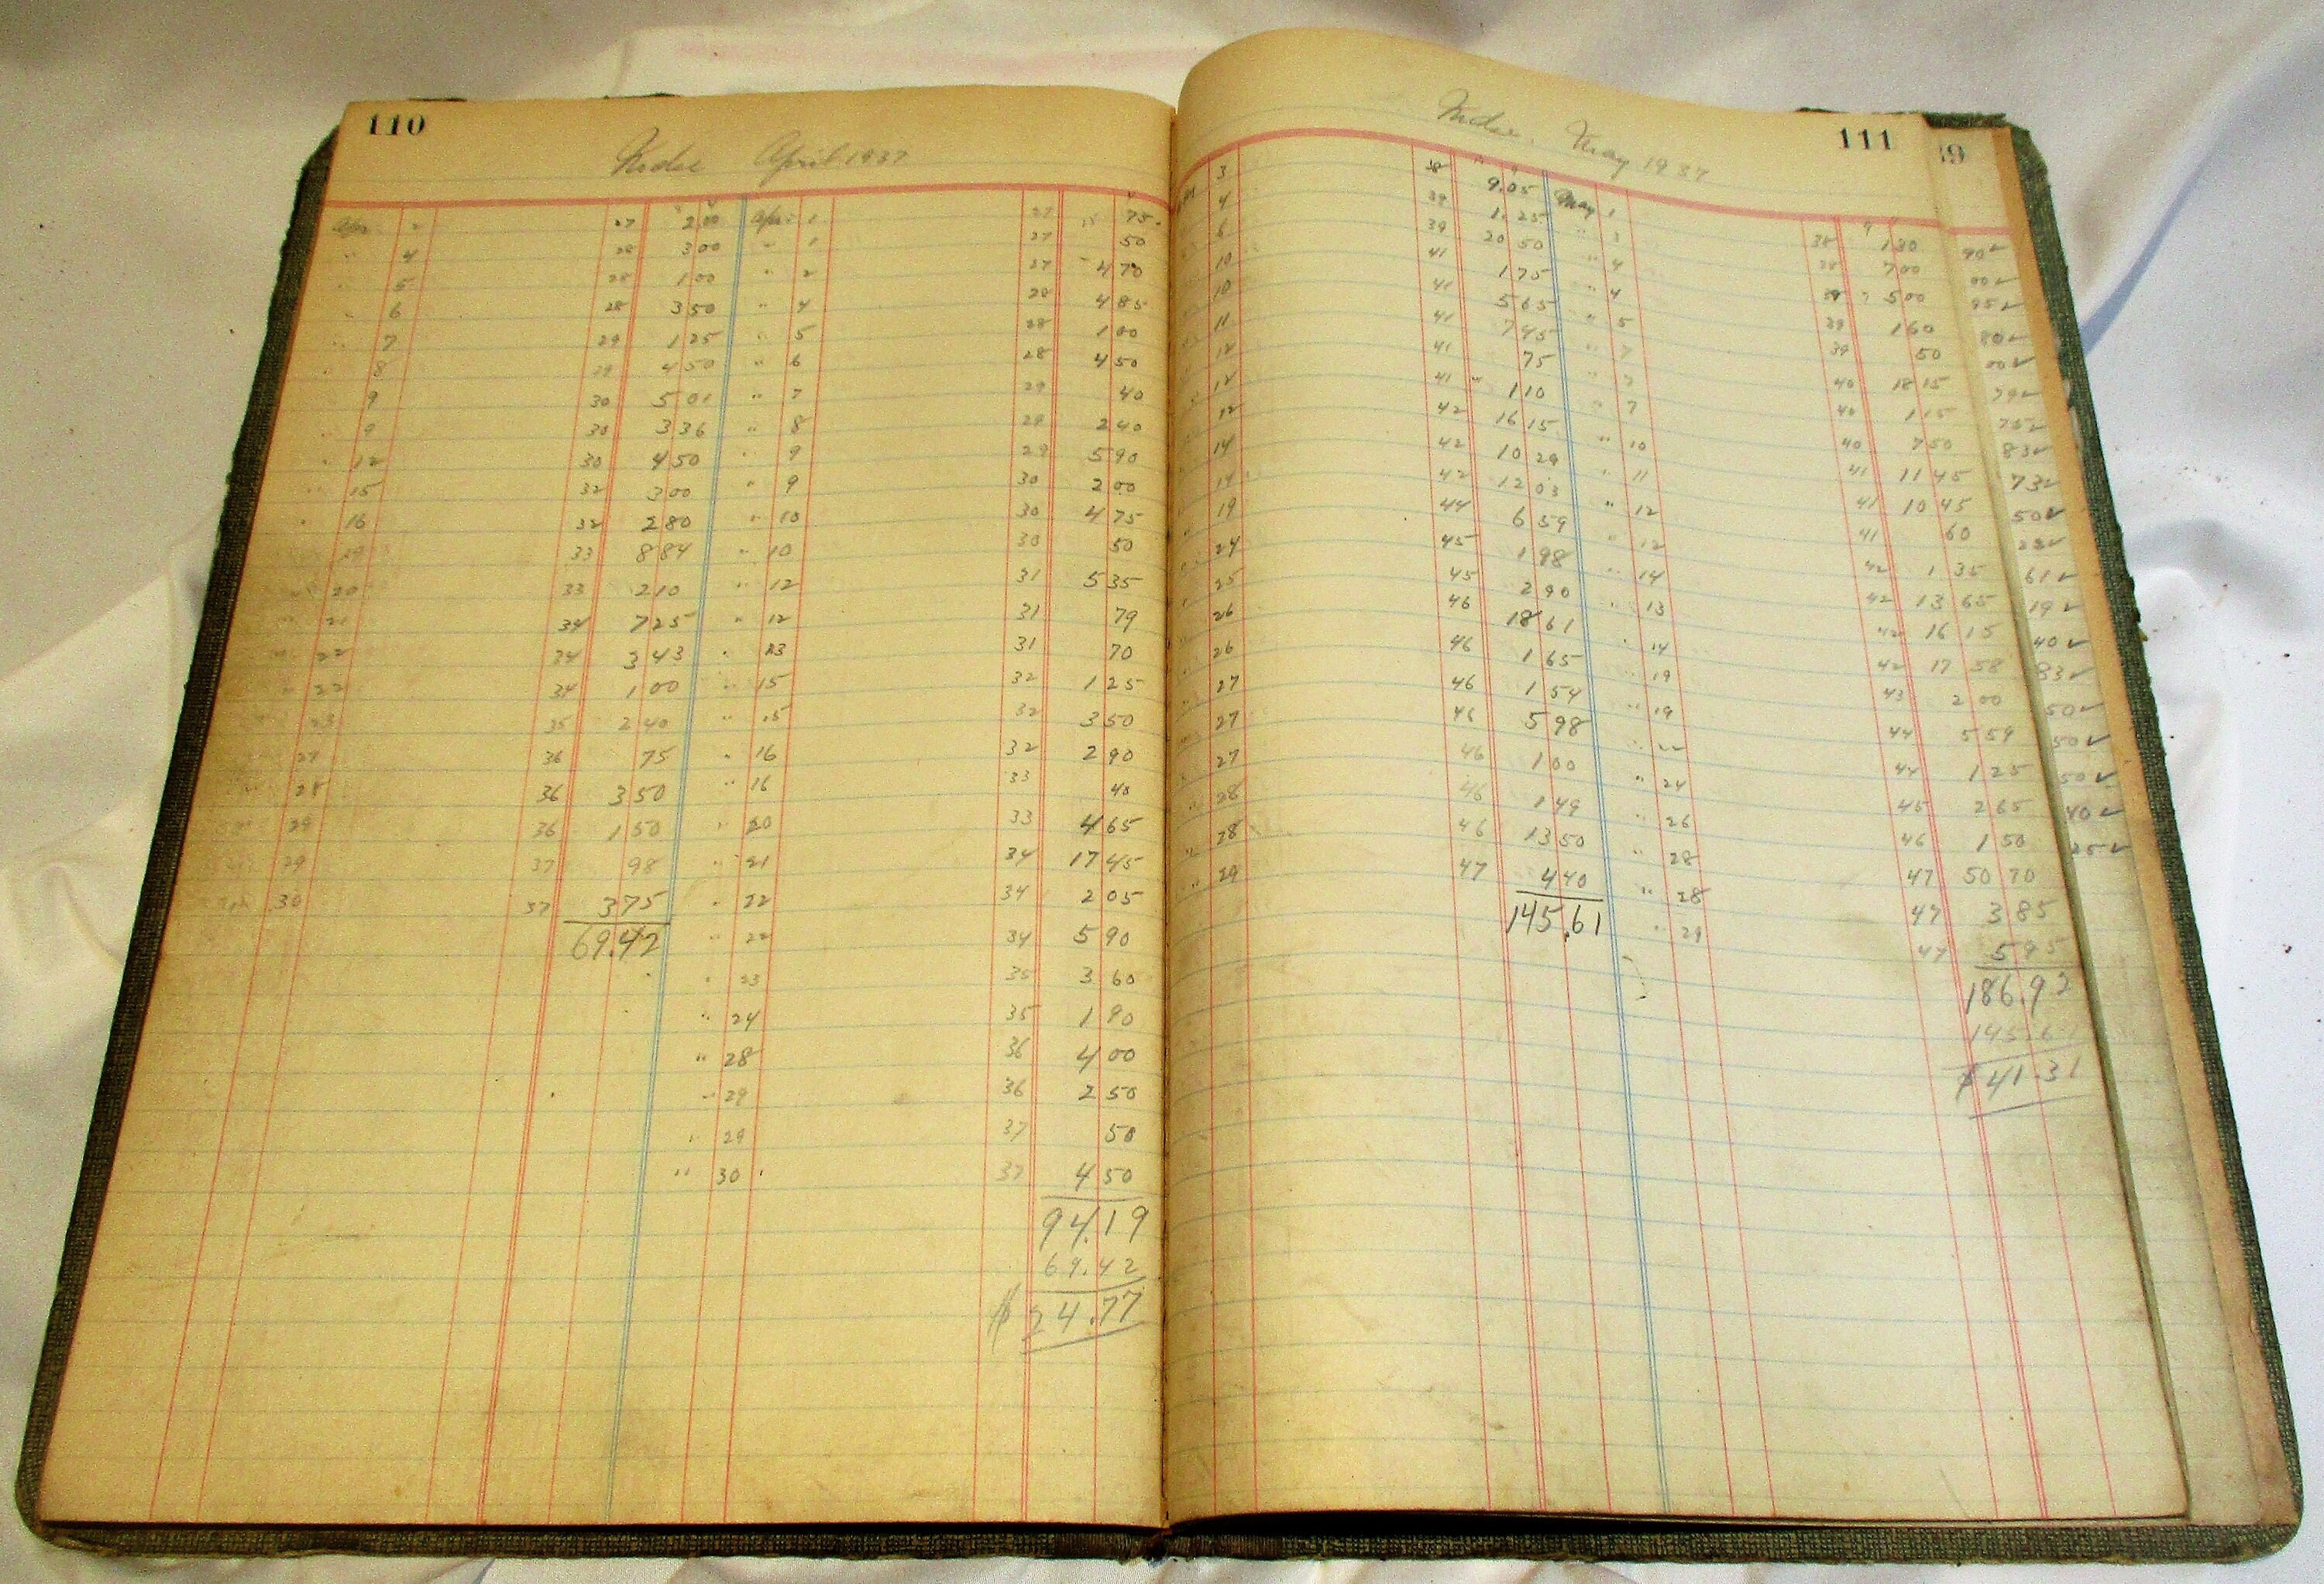 110
Mdse April 1937
Apr 2 27 2 00 Apr 1 27 75
" 4 28 3 00 " 1 27 50
" 5 28 1 00 " 2 27 4 70
" 6 28 3 50 " 4 28 4 85
" 7 29 1 25 " 5 28 1 00
" 8 29 4 50 " 6 28 4 50
9 30 5 01 " 7 29 40
" 9 30 3 36 " 8 29 2 40
" 12 30 4 50 " 9 29 5 90
" 15 32 3 00 " 9 30 2 00
" 16 32 2 80 " 10 30 4 75
19 33 8 84 " 10 30 50
" 20 33 2 10 " 12 31 5 35
" 21 34 7 25 " 12 31 79
" 22 34 3 43 " 13 31 70
" 22 34 1 00 " 15 32 1 25
23 35 2 40 " 15 32 3 50
27 36 75 " 16 32 2 90
" 28 36 3 50 " 16 33 40
29 36 1 50 " 20 33 4 65
29 37 98 " 21 34 17 45
30 37 3 75 " 22 34 2 05
69.42 " 22 34 5 90
" 23 35 3 60
" 24 35 1 90
" 28 36 4 00
" 29 36 2 50
" 29 37 50
" 30 37 4 50
94.19
69.42
$ 24.77
111
Mdse. May 1937
3 38 9.05 May 1 38 1 30
4 39 1 25 " 3 38 7 00
6 39 20 50 " 4 39 5 00
10 41 1 75 " 4 39 1 60
10 41 5 65 " 5 39 50
11 41 7 45 " 7 40 18 15
12 41 75 " 7 40 1 15
12 41 1 10 " 7 40 7 50
12 42 16 15 " 10 41 11 45
14 42 10 29 " 11 41 10 45
14 42 12 03 " 12 41 60
19 44 6 59 " 12 42 1 35
24 45 1 98 " 14 42 13 65
25 45 2 90 " 13 42 16 15
26 46 18 61 " 14 42 17 58
26 46 1 65 " 19 43 2 00
27 46 1 54 " 19 44 5 59
27 46 5 98 " 22 44 1 25
27 46 1 00 " 24 45 2 65
28 46 1 49 " 26 46 1 50
28 46 13 50 " 28 47 50 70
" 29 47 4 40 " 28 47 3 85
145.61 " 29 47 5 95
186.92
145.61
$ 41.31